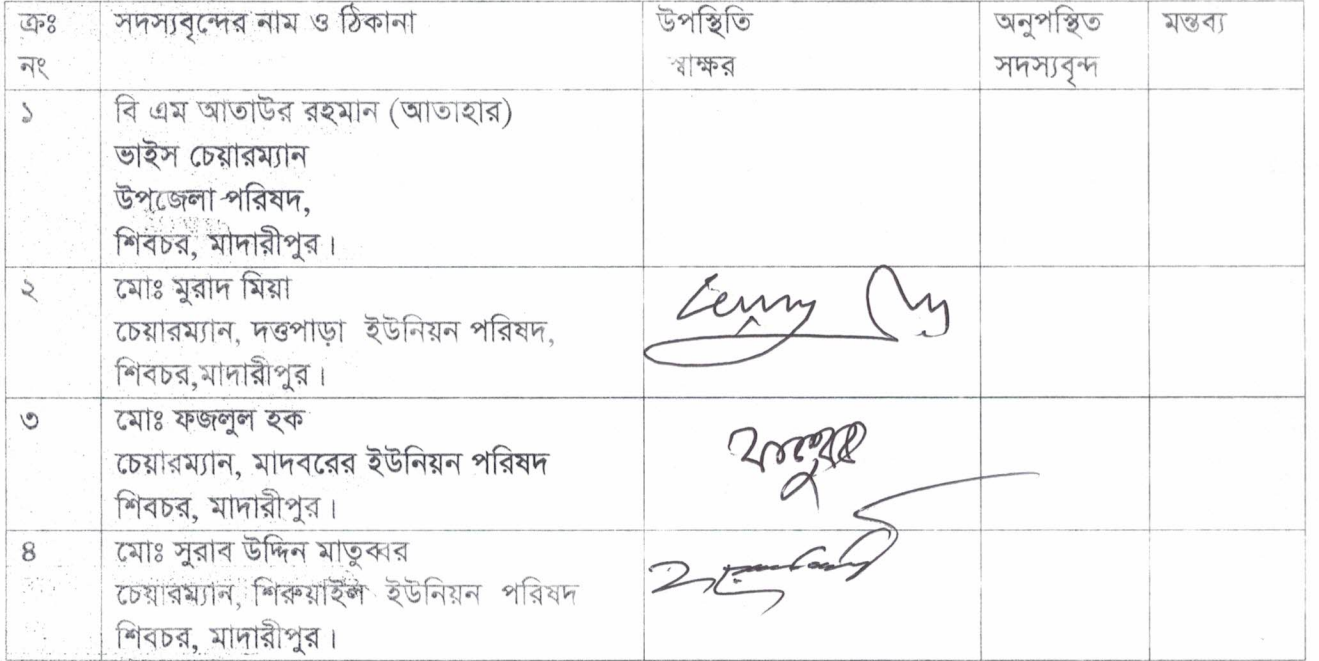 ক্রঃ সদস্যবৃন্দের নাম ও ঠিকানা উপস্থিতি অনুপস্থিত মন্তব্য
নং স্বাক্ষর সদস্যবৃন্দ
১ বি এম আতাউর রহমান (আতাহার)
ভাইস চেয়ারম্যান
উপজেলা পরিষদ,
শিবচর, মাদারীপুর।
২ মোঃ মুরাদ মিয়া
চেয়ারম্যান, দত্তপাড়া ইউনিয়ন পরিষদ,
শিবচর,মাদারীপুর।
৩ মোঃ ফজলুল হক
চেয়ারম্যান, মাদবরের ইউনিয়ন পরিষদ
শিবচর, মাদারীপুর।
৪ মোঃ সুরাব উদ্দিন মাতুব্বর
চেয়ারম্যান, শিরুয়াইল ইউনিয়ন পরিষদ
শিবচর, মাদারীপুর।